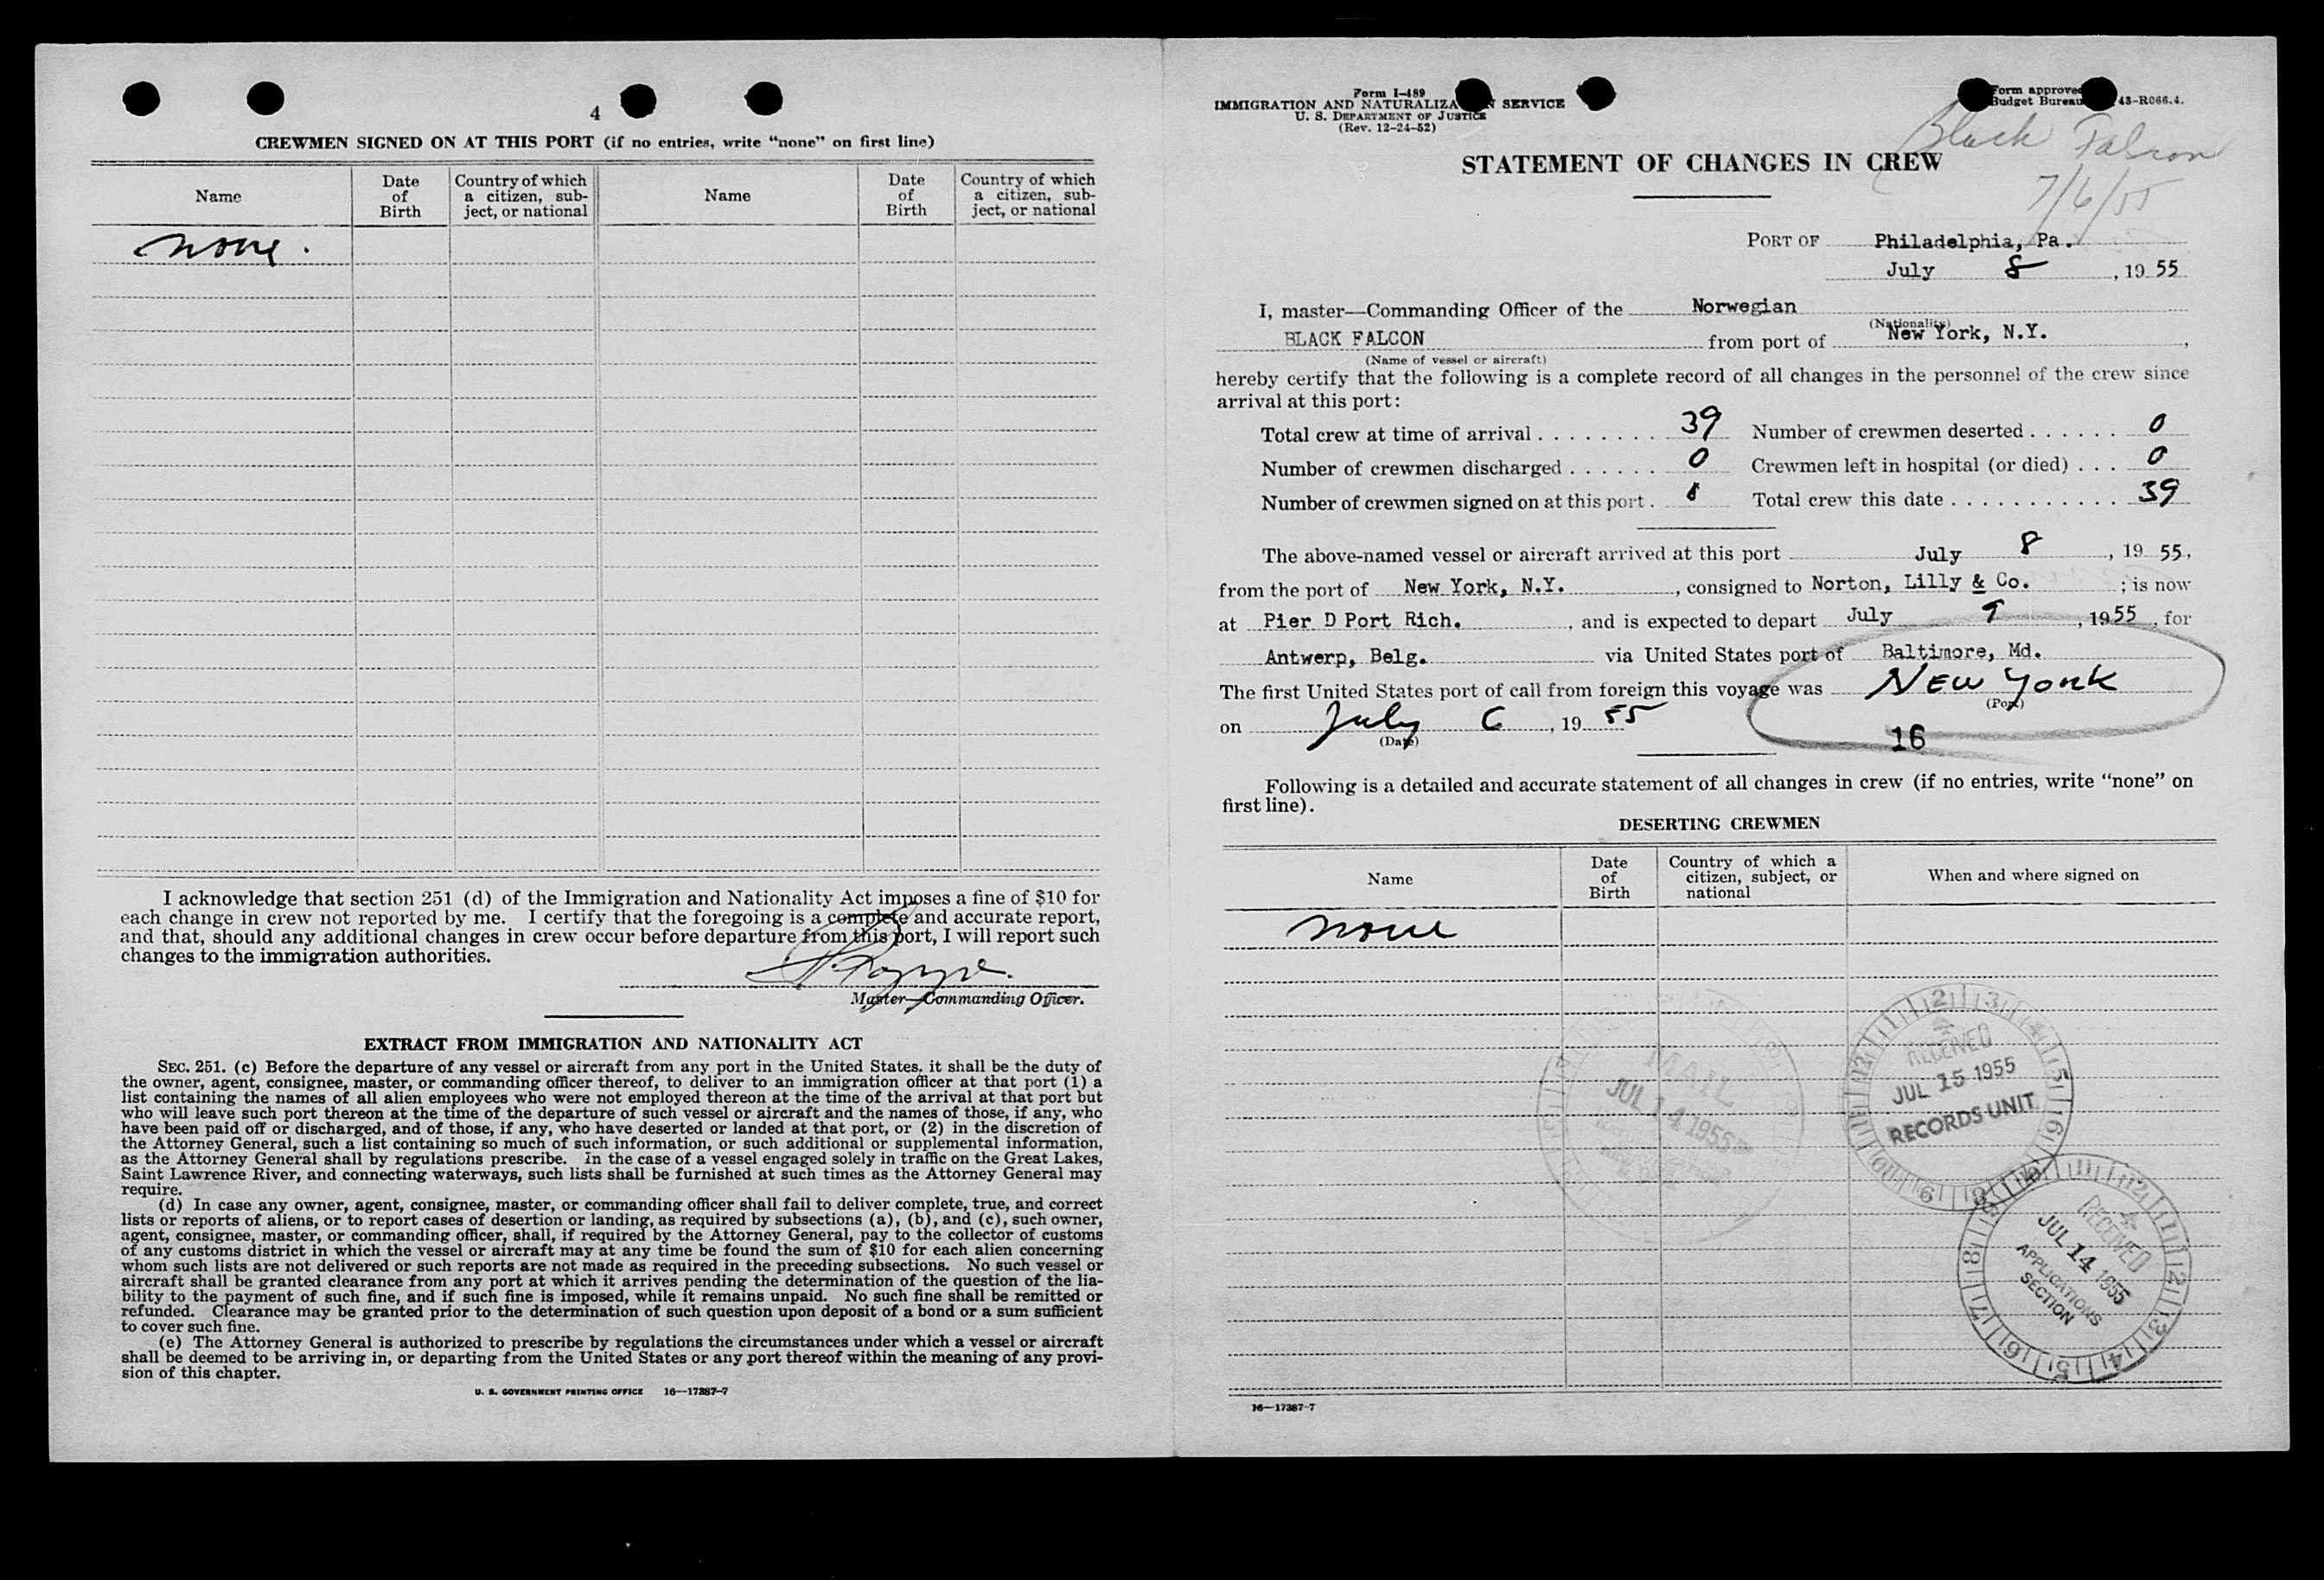 4
CREWMEN SIGNED ON AT THIS PORT (if no entries, write “none” on first line)
Name
Date of Birth
Country of which a citizen, subject, or national
Name
Date of Birth
Country of which a citizen, subject, or national
none.
I acknowledge that section 251 (d) of the Immigration and Nationality Act imposes a fine of $10 for
each change in crew not reported by me. I certify that the foregoing is a complete and accurate report,
and that, should any additional changes in crew occur before departure from this port, I will report such
changes to the immigration authorities.
Master—Commanding Officer.
EXTRACT FROM IMMIGRATION AND NATIONALITY ACT
SEC. 251. (c) Before the departure of any vessel or aircraft from any port in the United States, it shall be the duty of
the owner, agent, consignee, master, or commanding officer thereof, to deliver to an immigration officer at that port (1) a
list containing the names of all alien employees who were not employed thereon at the time of the arrival at that port but
who will leave such port thereon at the time of the departure of such vessel or aircraft and the names of those, if any, who
have been paid off or discharged, and of those, if any, who have deserted or landed at that port, or (2) in the discretion of
the Attorney General, such a list containing so much of such information, or such additional or supplemental information,
as the Attorney General shall by regulations prescribe. In the case of a vessel engaged solely in traffic on the Great Lakes,
Saint Lawrence River, and connecting waterways, such lists shall be furnished at such times as the Attorney General may
require.
(d) In case any owner, agent, consignee, master, or commanding officer shall fail to deliver complete, true, and correct
lists or reports of aliens, or to report cases of desertion or landing, as required by subsections (a), (b), and (c), such owner,
agent, consignee, master, or commanding officer, shall, if required by the Attorney General, pay to the collector of customs
of any customs district in which the vessel or aircraft may at any time be found the sum of $10 for each alien concerning
whom such lists are not delivered or such reports are not made as required in the preceding subsections. No such vessel or
aircraft shall be granted clearance from any port at which it arrives pending the determination of the question of the lia-
bility to the payment of such fine, and if such fine is imposed, while it remains unpaid. No such fine shall be remitted or
refunded. Clearance may be granted prior to the determination of such question upon deposit of a bond or a sum sufficient
to cover such fine.
(e) The Attorney General is authorized to prescribe by regulations the circumstances under which a vessel or aircraft
shall be deemed to be arriving in, or departing from the United States or any port thereof within the meaning of any provi-
sion of this chapter.
U. S. GOVERNMENT PRINTING OFFICE 16—17387-7
Form I-489
IMMIGRATION AND NATURALIZA SERVICE
U. S. DEPARTMENT OF JUSTICE
(Rev. 12-24-52)
Form approved
Budget Bureau 43-R066.4.
Black Falcon
7/6/55
STATEMENT OF CHANGES IN CREW
PORT OF Philadelphia, Pa.
July 8, 19 55
I, master—Commanding Officer of the Norwegian
(Nationality)
BLACK FALCON from port of New York, N.Y.,
(Name of vessel or aircraft)
hereby certify that the following is a complete record of all changes in the personnel of the crew since
arrival at this port:
Total crew at time of arrival 39 Number of crewmen deserted 0
Number of crewmen discharged 0 Crewmen left in hospital (or died) 0
Number of crewmen signed on at this port Total crew this date 39
The above-named vessel or aircraft arrived at this port July 8, 19 55,
from the port of New York, N.Y., consigned to Norton, Lilly & Co.; is now
at Pier D Port Rich., and is expected to depart July 9, 1955, for
Antwerp, Belg. via United States port of Baltimore, Md.
The first United States port of call from foreign this voyage was NEW YORK
(Port)
on July 6, 19 55
(Date)
16
Following is a detailed and accurate statement of all changes in crew (if no entries, write “none” on
first line).
DESERTING CREWMEN
Name
Date of Birth
Country of which a citizen, subject, or national
When and where signed on
none
MAIL
JUL 14 1955
RECEIVED
JUL 15 1955
RECORDS UNIT
RECEIVED
JUL 14 1955
APPLICATIONS
SECTION
16—17387-7